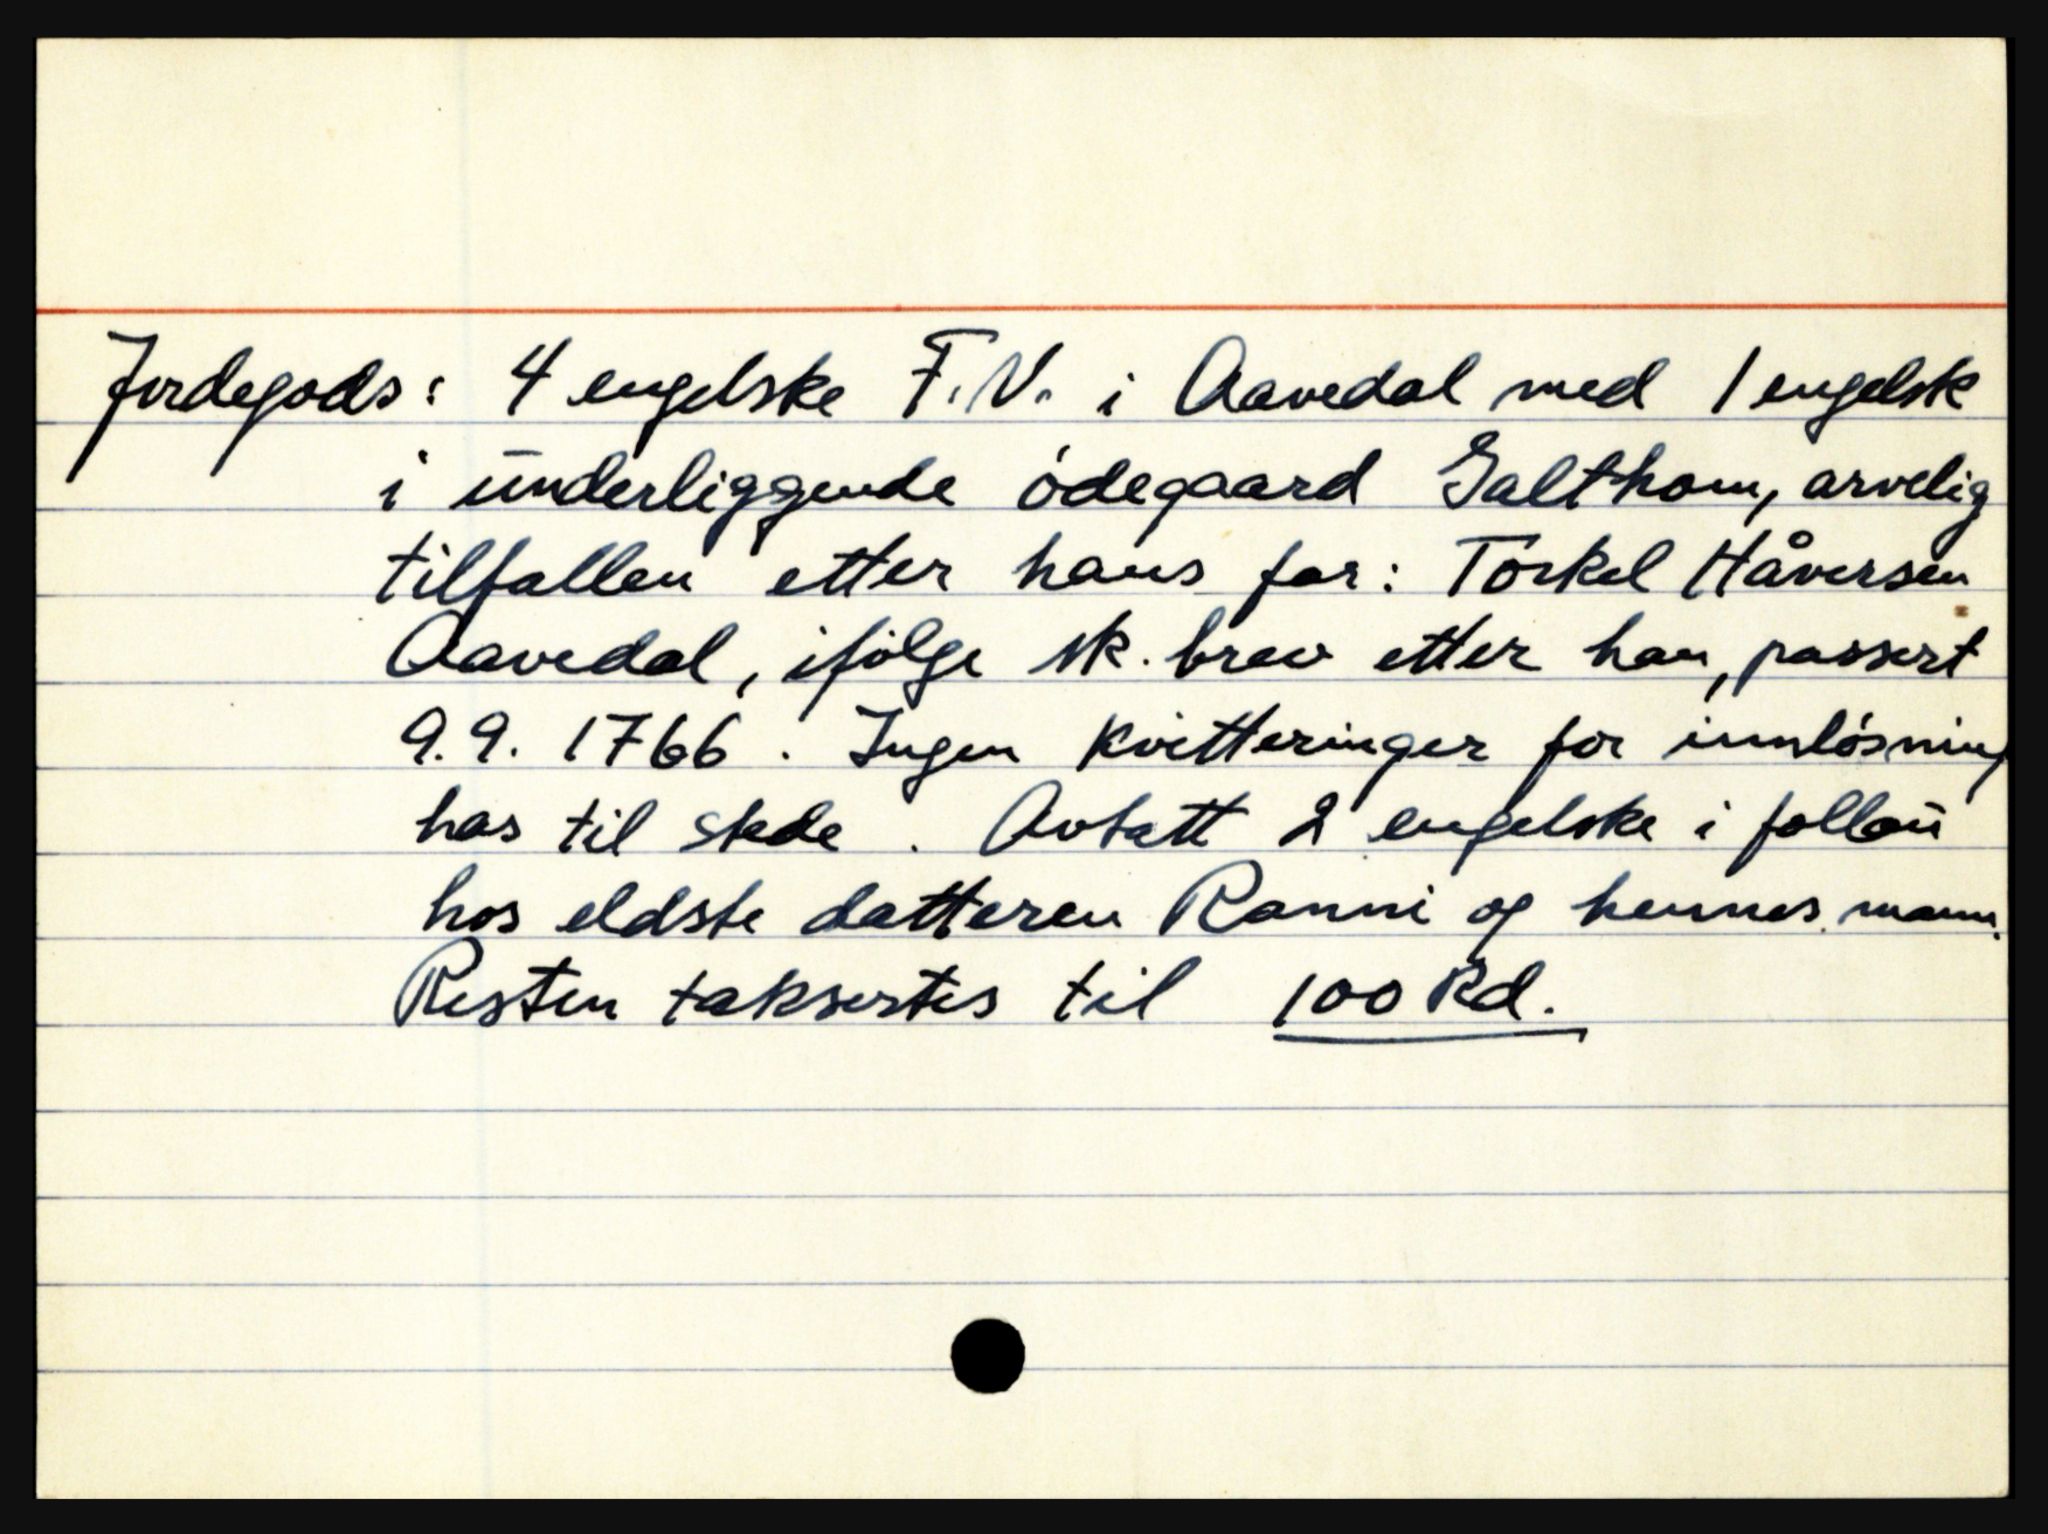 Jordegods: 4 engelske F.V. i Aavedal med 1 engelsk
i underliggende ödegaard Galthom, arvelig
tilfallen etter hans far: Torkel Håversen
Aavedal, ifölge sk. brev etter han, passert
9.9. 1766. Ingen kvitteringer for innlösning
has til stede. Avsatt 2 engelske i follau
hos eldste datteren Ranni og hennes mann.
Resten taksertes til 100 Rd.